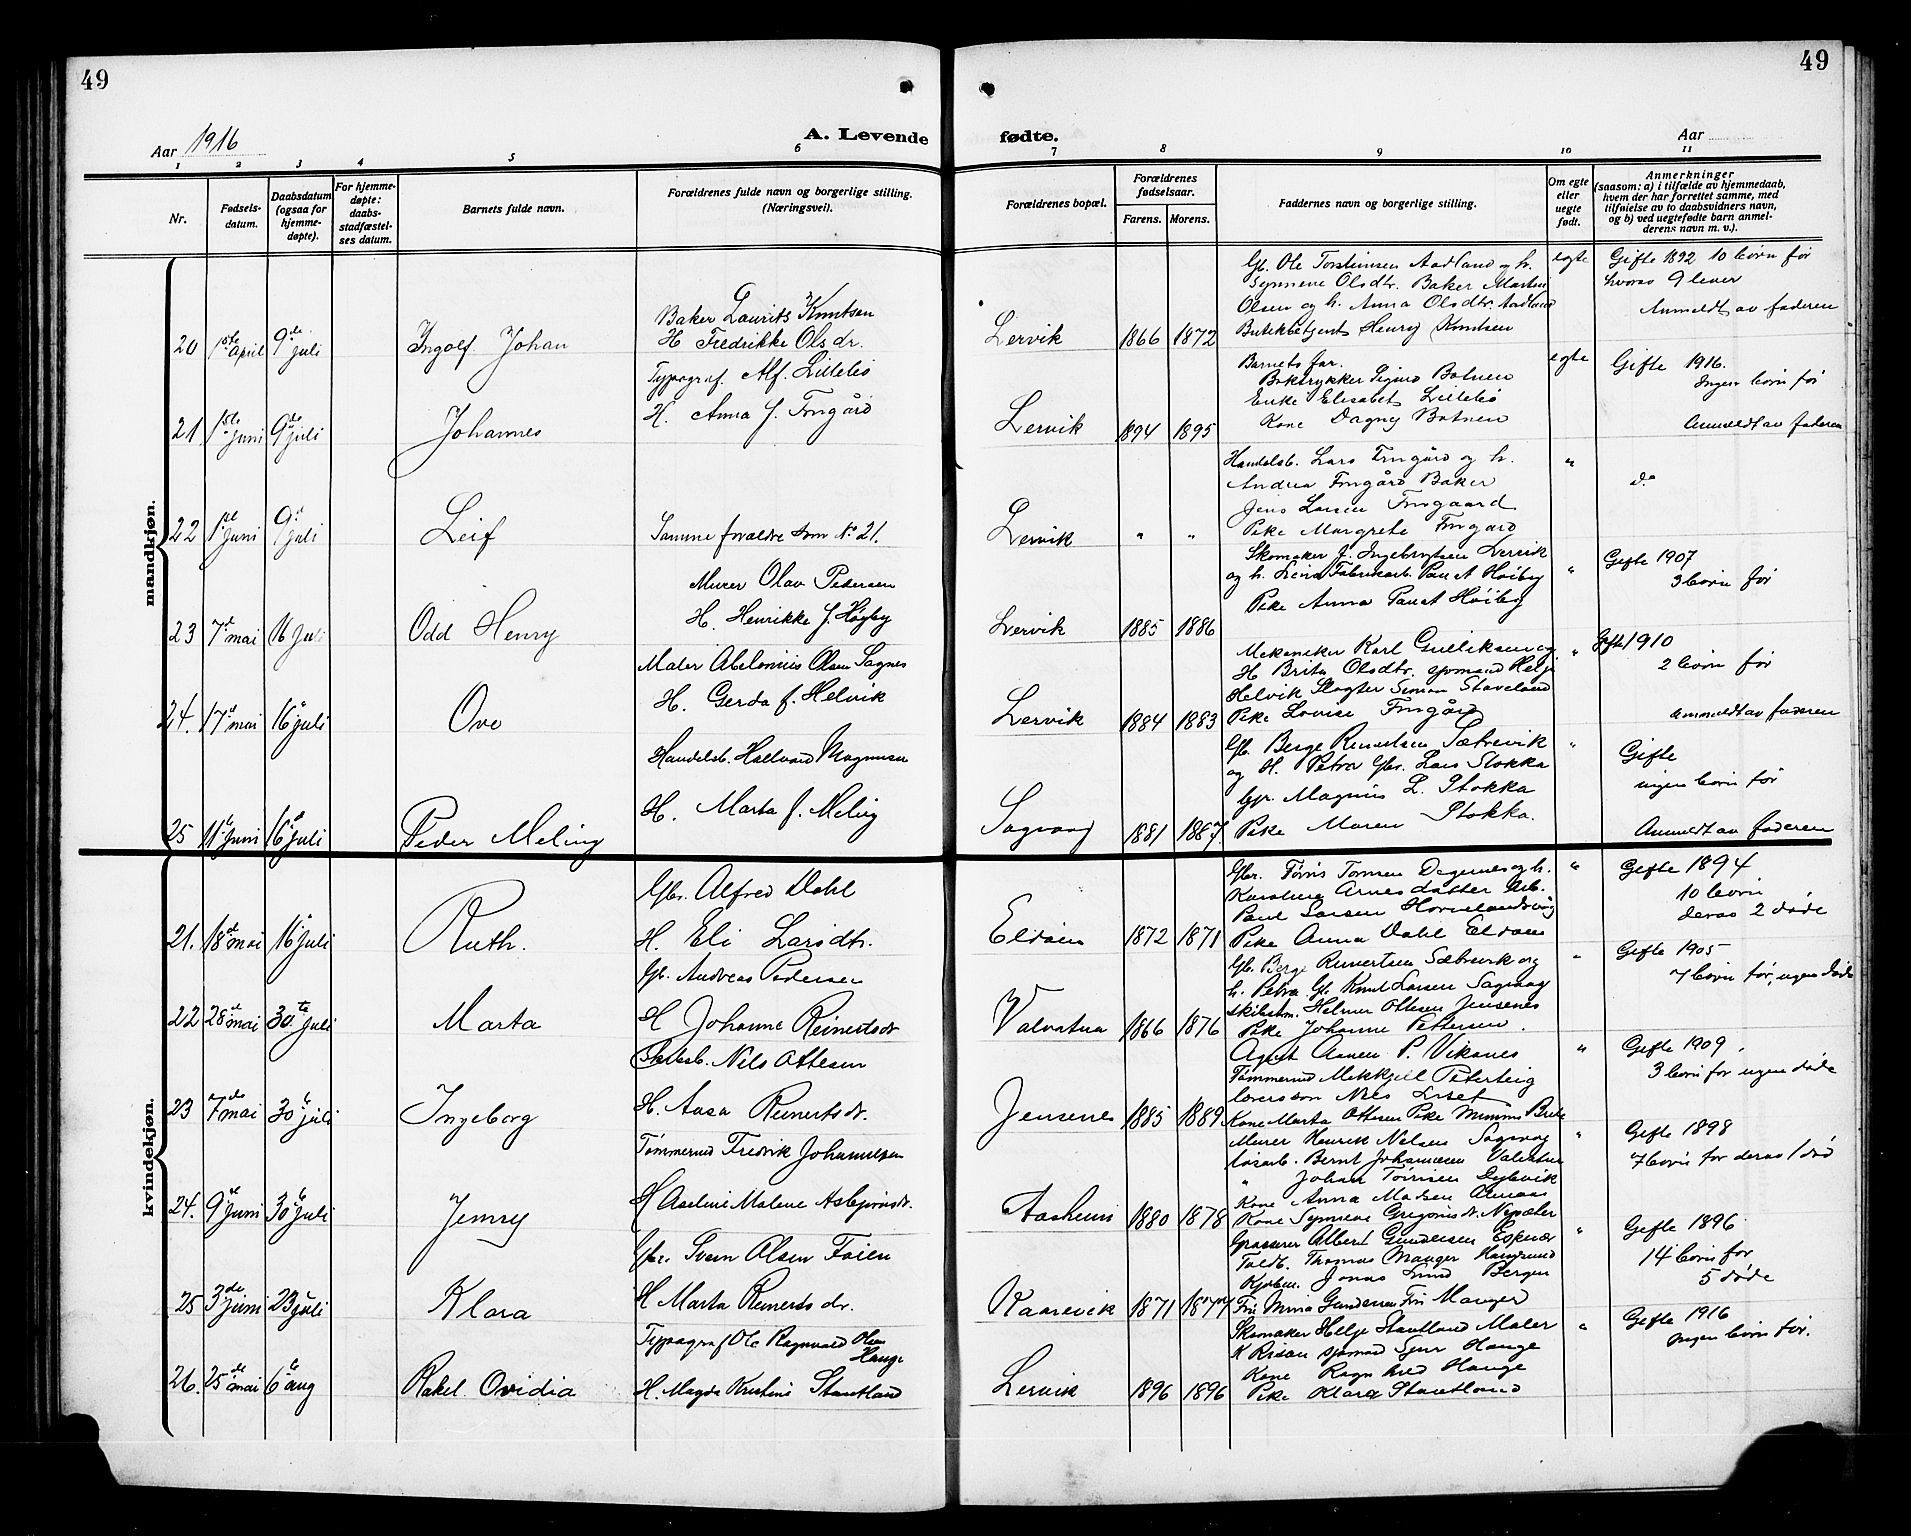 49
49
Aar 1916
A. Levende fødte.
Aar
1 2 3 4 5 6 7 8 9 10 11
Nr.
Fødsels-datum.
Daabsdatum (ogsaa for hjemme-døpte).
For hjemme-døpte: daabs-stadfæstel-ses datum.
Barnets fulde navn.
Forældrenes fulde navn og borgerlige stilling. (Næringsvei).
Forældrenes bopæl.
Forældrenes fødselsaar.
Farens. Morens.
Faddernes navn og borgerlige stilling.
Om egte eller uegte født.
Anmerkninger (saasom: a) i tilfælde av hjemmedaab, hvem der har forrettet samme, med tilføielse av to daabsvidners navn, og b) ved uegtefødte barn anmel-derens navn m. v.).
mandkjøn.
Baker Laurits Knutsen
20 1ste April 9de juli Ingolf Johan H. Fredrikke Olsdr. Lervik 1866 1872
Gb. Ole Torstensen Aadland og h.
Synneve Olsdtr. Baker Martin
Olsen og h. Anna Olsdtr Aadland
Butikbetjent Henry Knutsen
egte
Gifte 1892 10 børn før
hvorav 9 lever
Anmeldt av faderen
Typograf. Alf. Lillebø
H. Anna f. Frugård
21 1ste Juni 9de juli Johannes Lervik 1894 1895
Barnets far.
Boktrykker Sigurd Botnen
Enke Elisabet Lillebø
Kone Dagny Botnen
egte
Gifte 1916.
Ingen børn før
Anmeldt av faderen
22 1ste Juni 9de juli Leif Samme forældre som No 21. Lervik " "
Handelsb. Lars Frugård og h.
Andrea Frugård Baker
Jens Larsen Frugaard
Pike Margrete Frugård
"
do
Murer Olav Pedersen
H. Henrikke f. Høyby
23 7de mai 16 juli Odd Henry Lervik 1885 1886
Skomaker J. Ingebrigtsen Lervik
og h. Lina Fabrikarb. Paul A Høiby
Pike Anna Paul A Høiby
"
Gifte 1907
3 børn før
Maler Abelonius Olsen Sagnes
H. Gerda f. Helvik
24. 17de mai 16de juli Ove Lervik 1884 1883
Mekaniker Karl Gulliksen og
H Brita Olsdtr. sjømand Helje
Helvik Slagter Simon Staveland
Pike Lovise Frugård
"
Gifte 1910
2 børn før
Anmeldt av faderen
Handelsb. Hallvard Magnusen
H. Marta f. Meling
25 11te Juni 16de juli Peder Meling Sagvaag 1881 1887.
Gb. Berge Reinertsen Sætrevik
og H. Petra Gbr. Lars Stokka
Gbr. Magnus L. Stokka
Pike Maren Stokka.
"
Gifte
ingen børn før
Anmeldt av faderen
kvindekjøn.
Gbr. Alfred Dahl
21. 18de mai 16de juli Ruth. H. Eli Larsdtr. Eldøen 1872 1871
Karoline Arnesdatter Arb.
Paul Larsen Hornelandsvåg
Pike Anna Dahl Eldøen
"
Gifte 1894
10 børn
deras 2 døde
Gb. Andreas Pedersen
22 28de mai 30te juli Marta H Johanne Reinertsdr Valvatna 1866 1876
Gb. Berge Reinertsen Sætrevik og
h. Petra Gb. Knut Larsen Sagvaag
Helmer Ottesen Jensenes
Pike Johanne Pettersen.
"
Gifte 1905
7 børn før, ingen døde
Nils Ottesen
23 7de mai 30te juli Ingeborg H. Aasa Reinertsdr. Jensenes 1885 1889
Agent Asmen P. Vikanes
Tømmermd Mekkjell Peterteig
Nils Liset
Kone Marta Ottesen Pike Mimmi Brekke
"
Gifte 1909.
3 børn før ingen døde
Tømmermd Fredrik Johannesen
24. 9de Juni 30te juli Jenny H Aseline Malene Asbjørnsdr. Aasheim 1880 1878
Murer Henrik Nilsen Sagvaag
løsarb. Bernt Johannesen Valvatna
" Johan Tørrisen Dybvik
Kone Anna Madsen
Kone Synneve Gregoriusdr. Nepæler
"
Gifte 1898
7 børn før deras 1 død
Gbr. Svein Olsen Føien
25 3de Juni 23 juli Klara H Marta Reinertsdr. Kaarevik 1871 1877
Albert Gundersen Espevær
Toldb. Thomas Manger Haugesund
Jonas Lund Bergen
Fru Mina Gundersen Fru Manger
"
Gifte 1896
14 børn før
5 døde
Typograf Ole Ragnvald Olsen Hauge
26. 25de mai 6te aug Rakel Ovidia H. Magda Kristine Stautland Lervik 1896 1896
Skomaker Helje Stautland Maler
K Risøen sjømand Sjur Hauge
Kone Ragnhild Hauge
Pike Klara Stautland
"
Gifte 1916
ingen børn før.